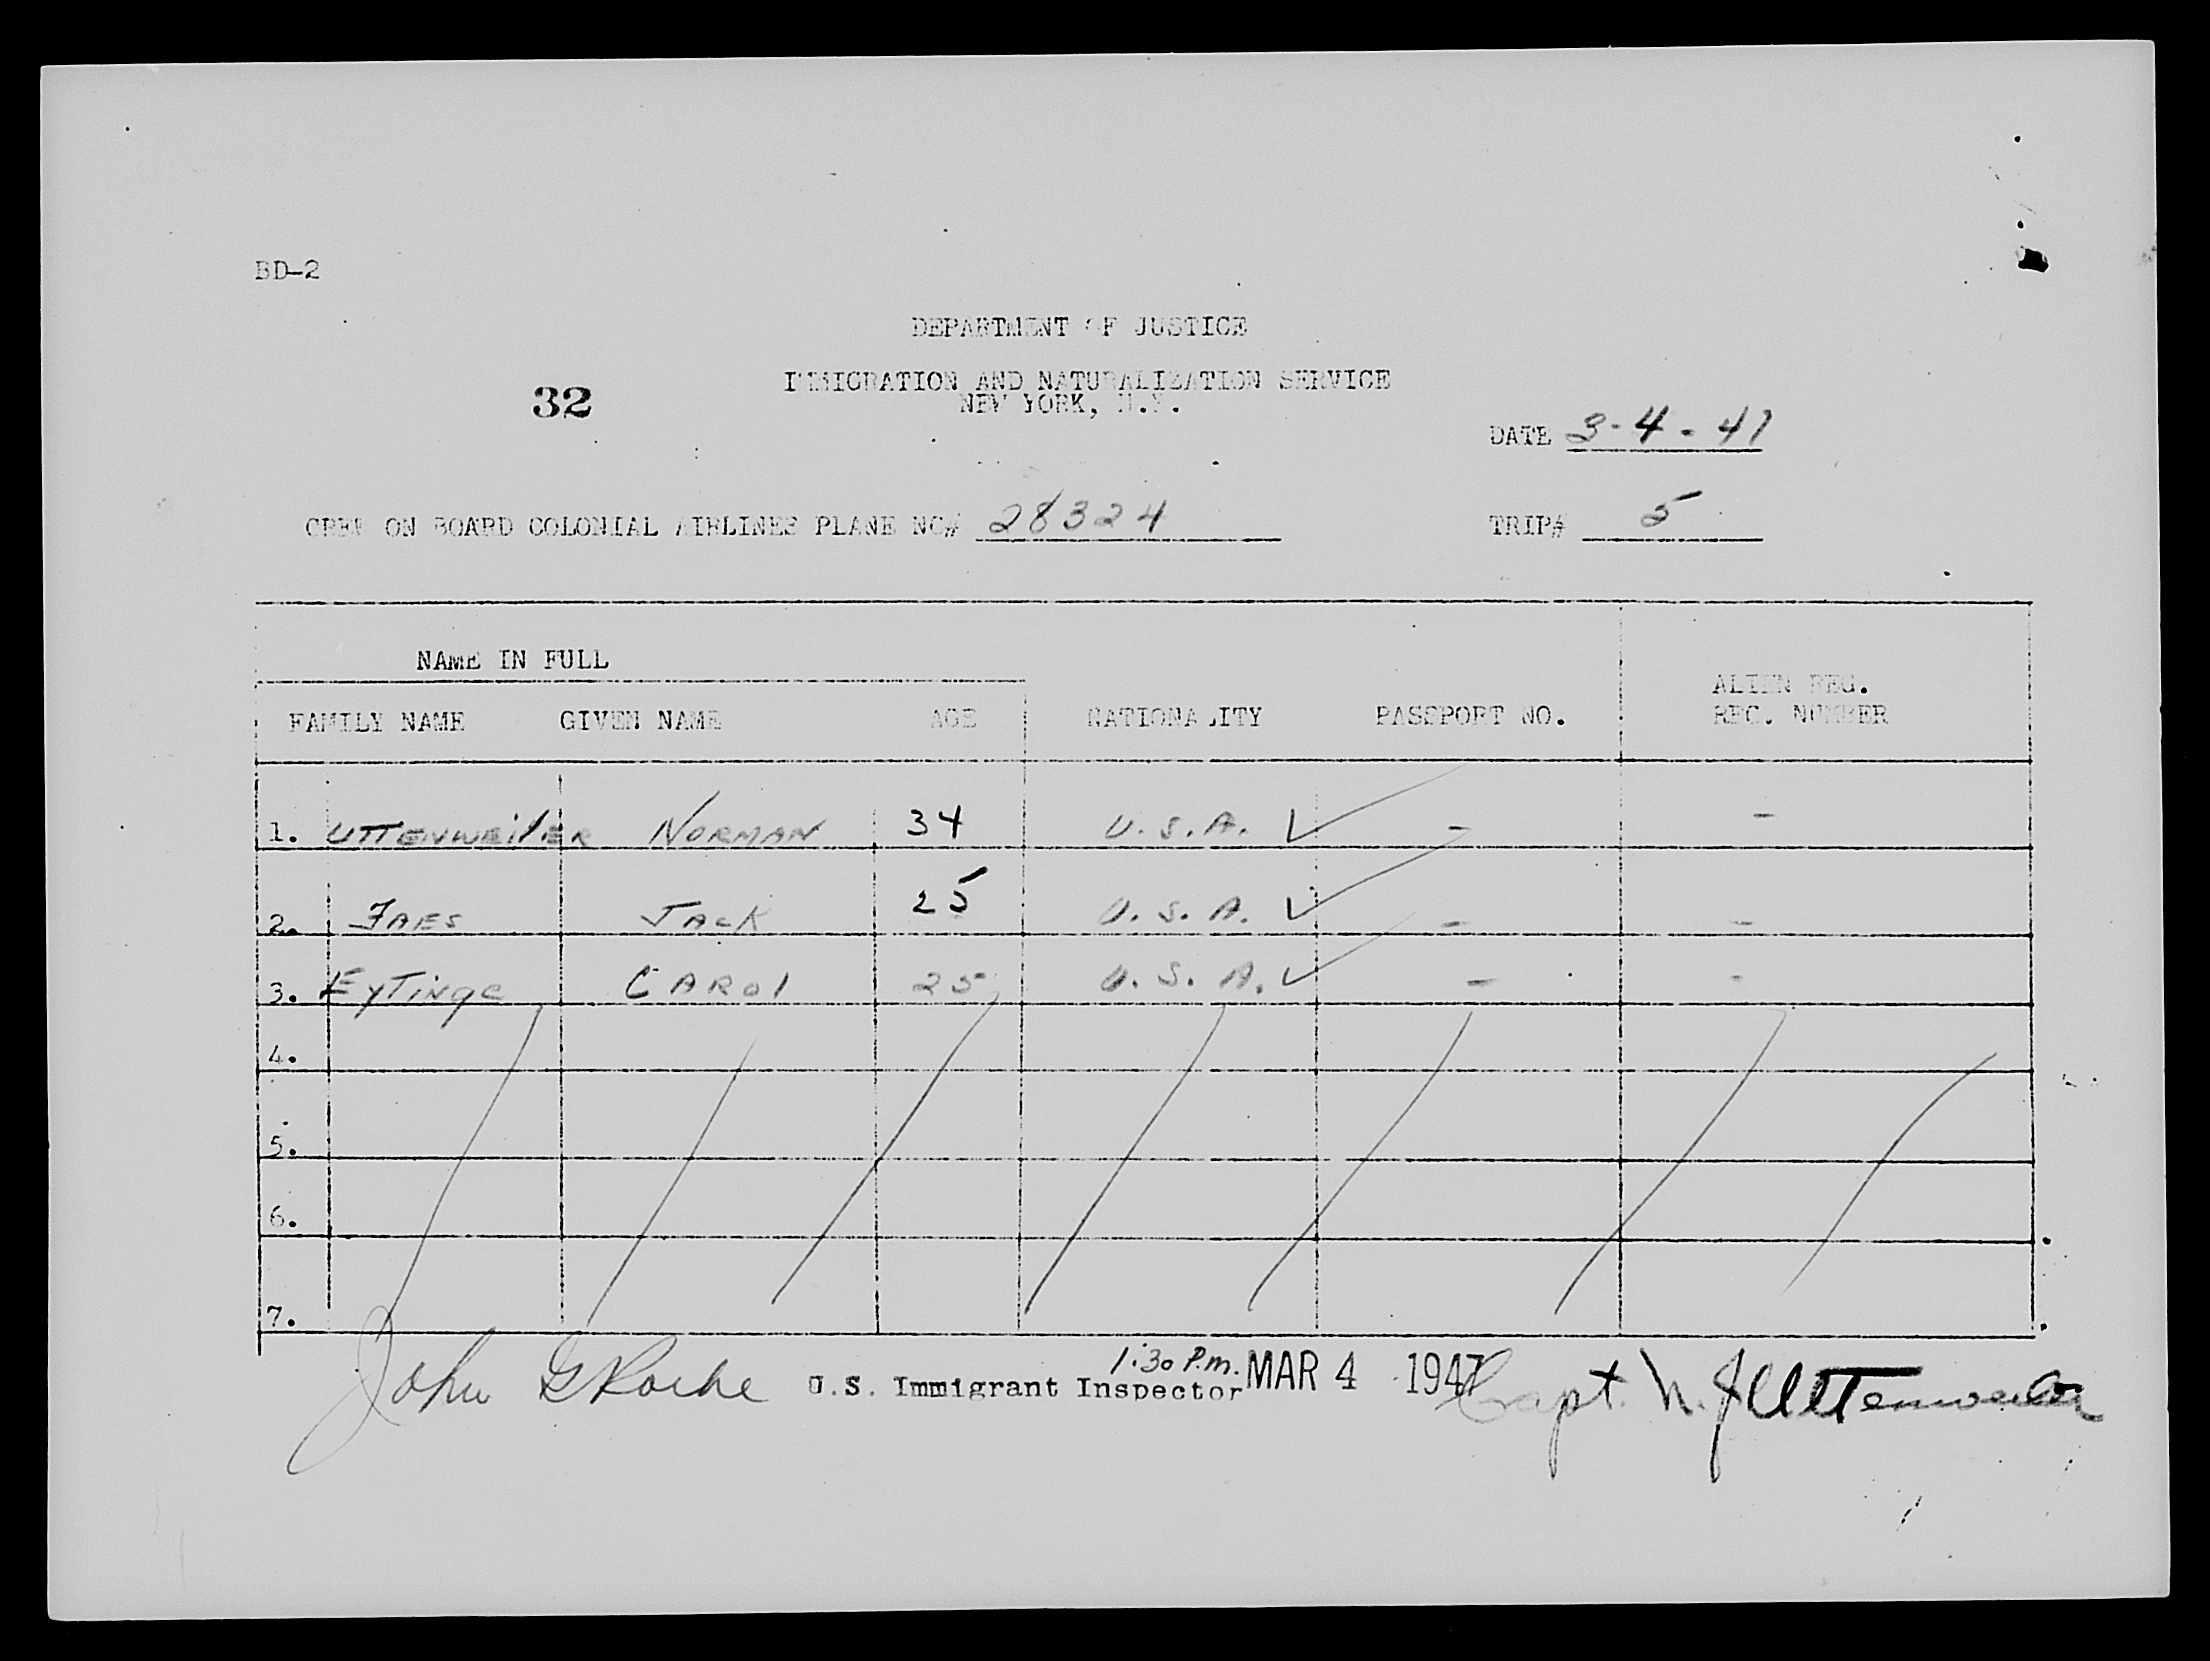 BD-2
DEPARTMENT OF JUSTICE
32
IMMIGRATION AND NATURALIZATION SERVICE
NEW YORK, N.Y.
DATE 3-4-47
CREW ON BOARD COLONIAL AIRLINES PLANE NC# 28324 TRIP# 5
NAME IN FULL
FAMILY NAME GIVEN NAME AGE NATIONALITY PASSPORT NO. ALIEN REG. REC. NUMBER
1. UTTENWEILER NORMAN 34 U.S.A. ✓ - -
2. FAES JACK 25 U.S.A. ✓ - -
3. EyTinge CAROl 25 U.S.A. ✓ - -
4.
5.
6.
7.
John G Roche U.S. Immigrant Inspector 1:30 P.m. MAR 4 1947 Capt. N. J Uttenweiler